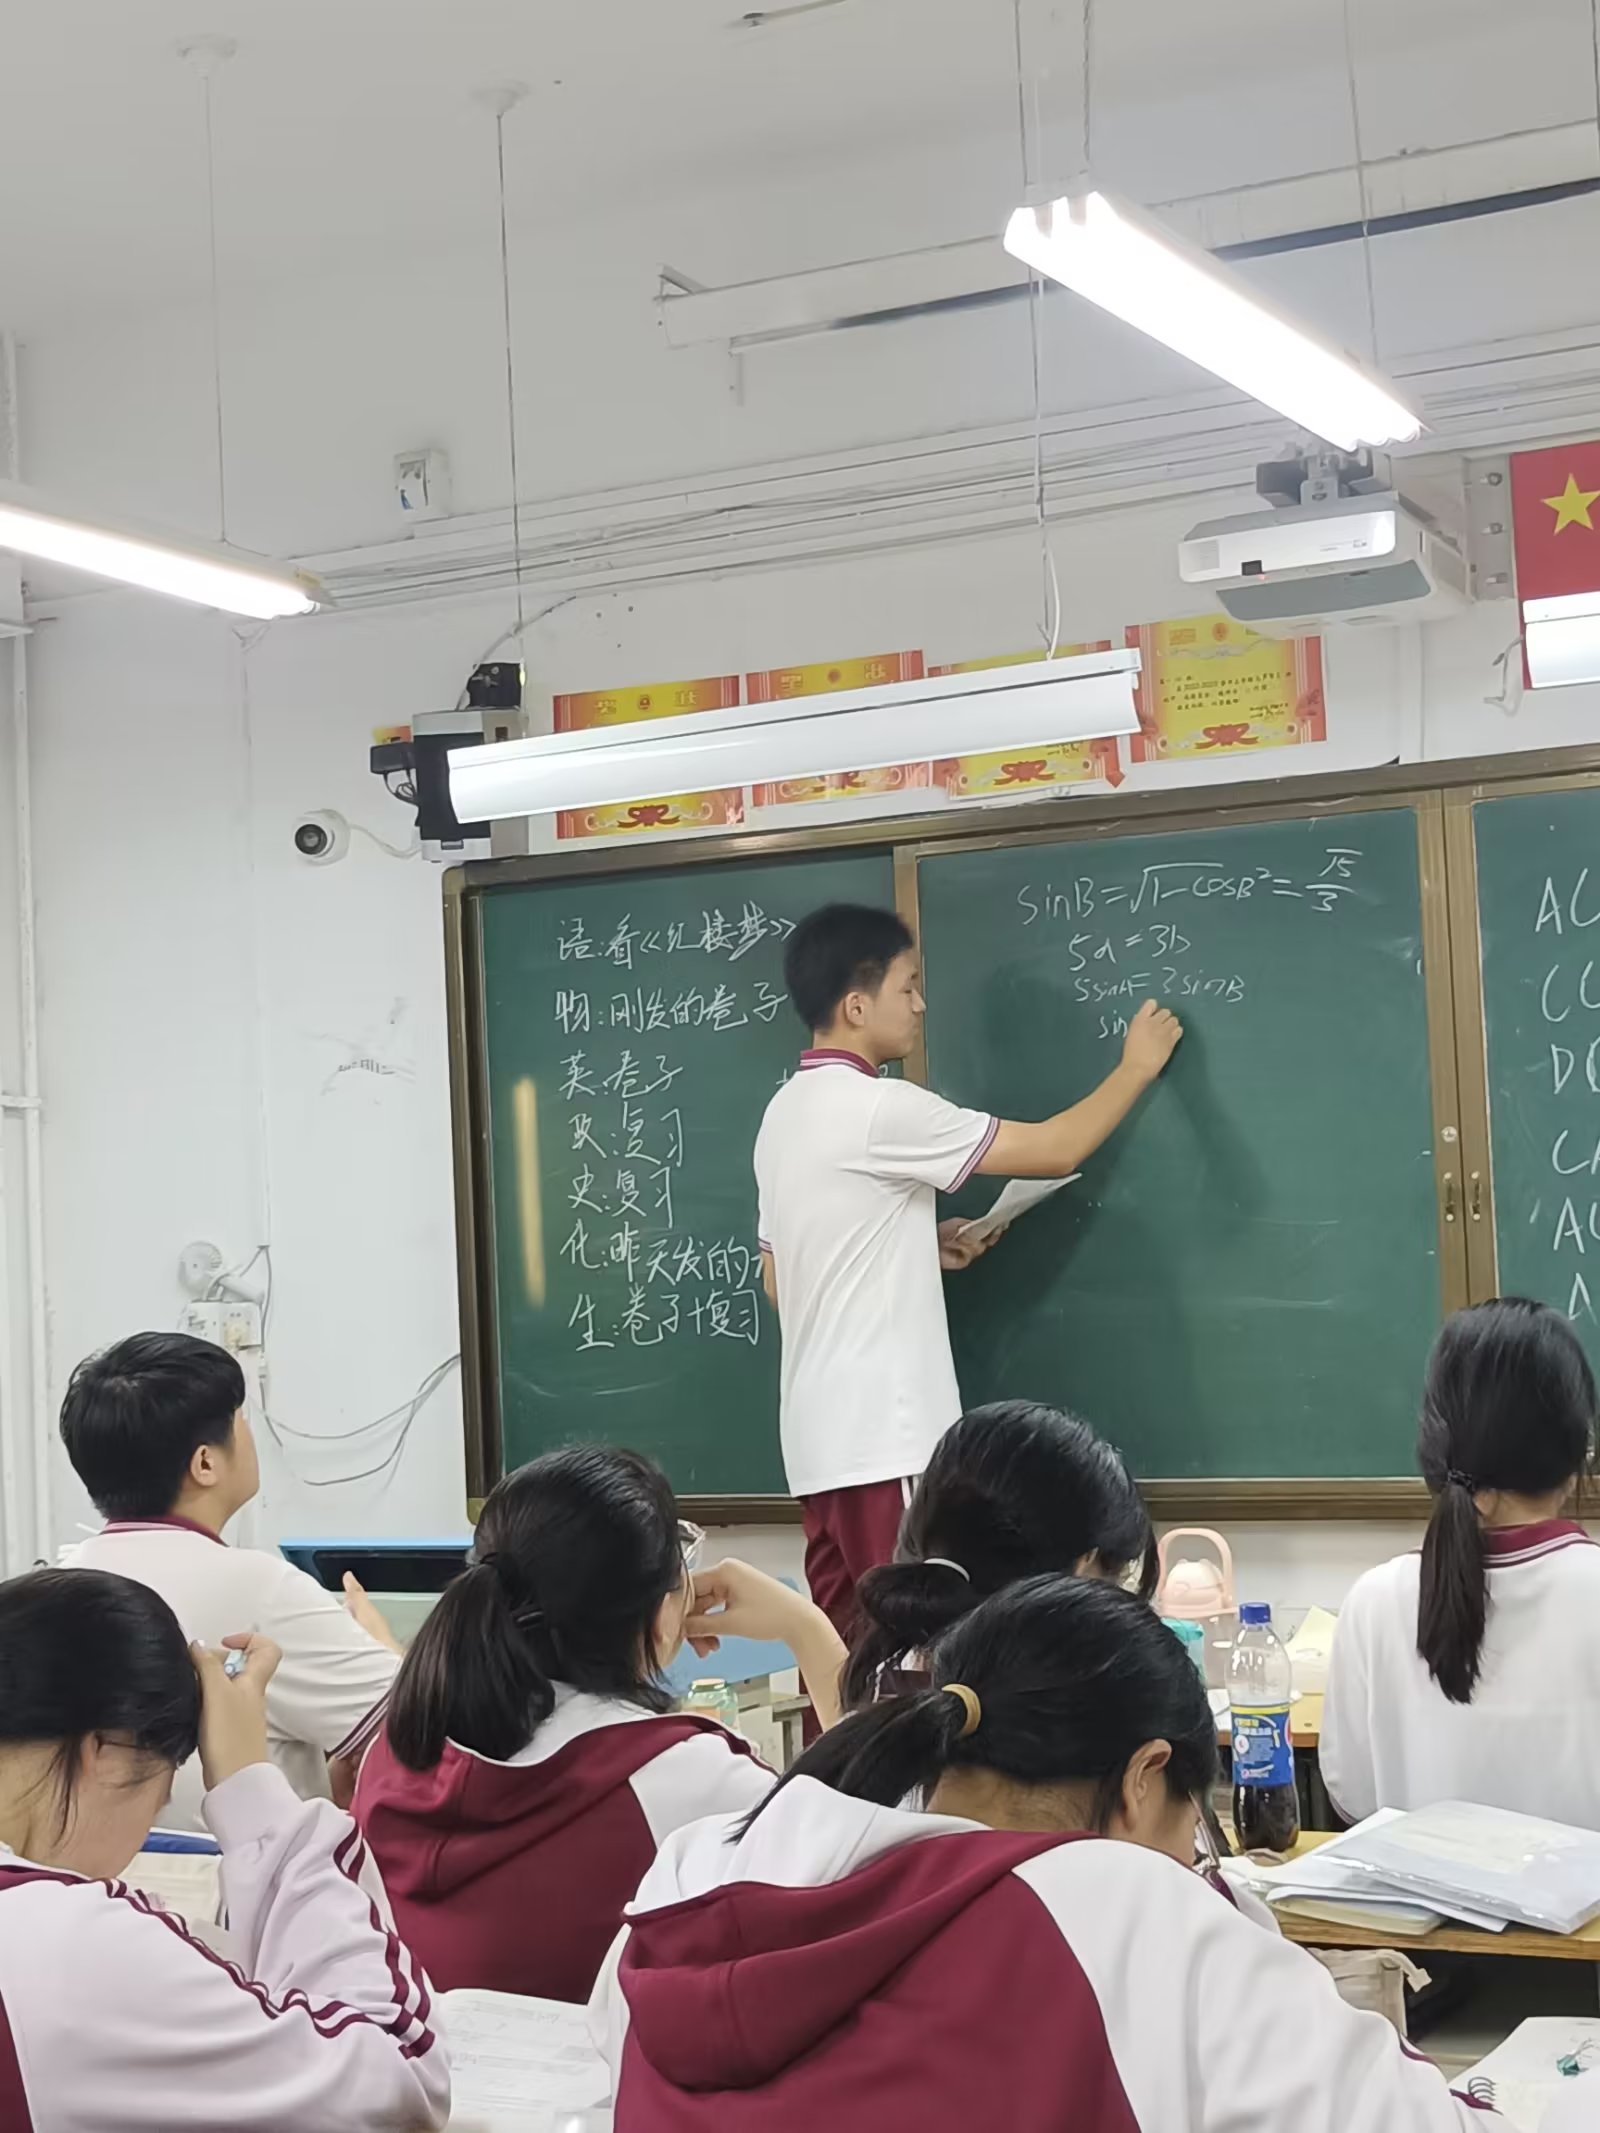 奖 状
语:看《红楼梦》
物:刚发的卷子
英:卷子
政:复习
史:复习
化:昨天发的
生:卷子+复习
sinB=√1-cosB²=√15/3
5a=3b
5sinA=3sinB
sin
AC
CC
D
CA
AC
A